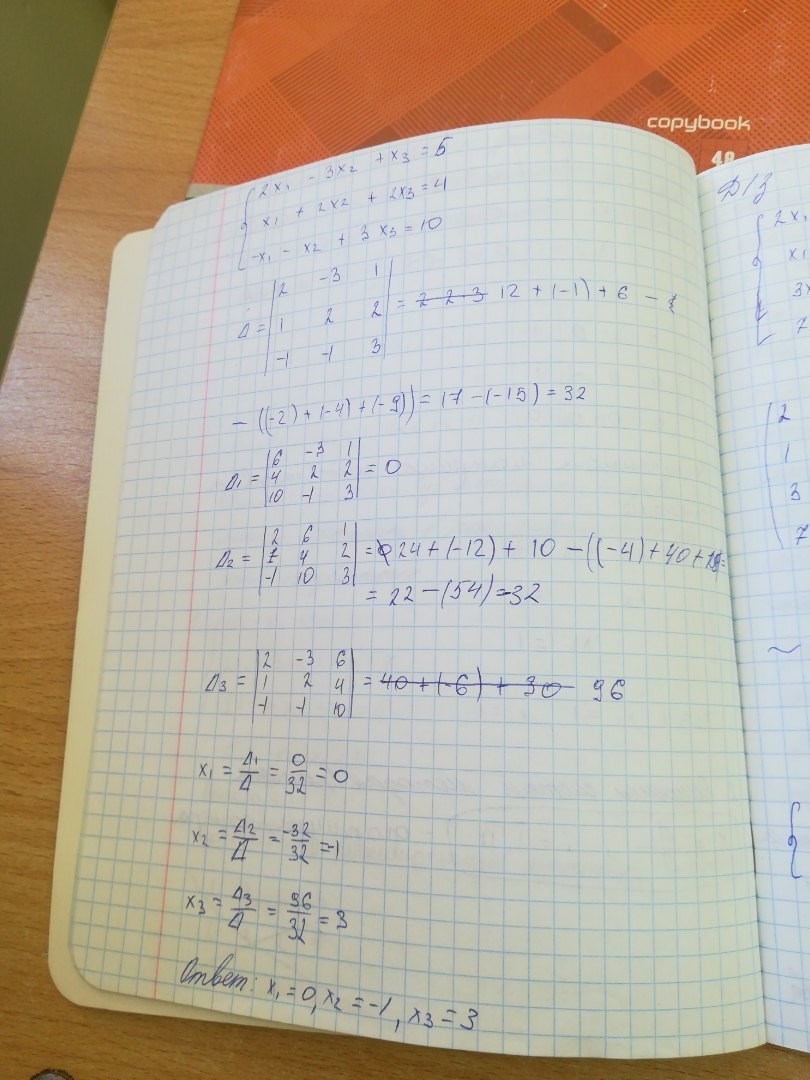 copybook
48
2x₁ - 3x₂ + x₃ = 5
x₁ + 2x2 + 2x3 = 4
-x₁ - x₂ + 3x₃ = 10
Δ = | 2 -3 1 | = 2·2·3 12 + (-1) + 6 -
| 1 2 2 |
| -1 -1 3 |
- ((-2) + (-4) + (-9)) = 17 - (-15) = 32
Δ₁ = | 6 -3 1 | = 0
| 4 2 2 |
| 10 -1 3 |
Δ₂ = | 2 6 1 | = 24 + (-12) + 10 - ((-4) + 40 + 18) =
| 1 4 2 |
| -1 10 3 |
= 22 - (54) = -32
Δ₃ = | 2 -3 6 | = 40 + (-6) + 30 96
| 1 2 4 |
| -1 -1 10 |
x₁ = Δ₁/Δ = 0/32 = 0
x₂ = Δ₂/Δ = -32/32 = -1
x₃ = Δ₃/Δ = 96/32 = 3
Ответ: x₁ = 0, x₂ = -1, x₃ = 3
Д/З
2x₁
x₁
3x
7
2
1
3
7